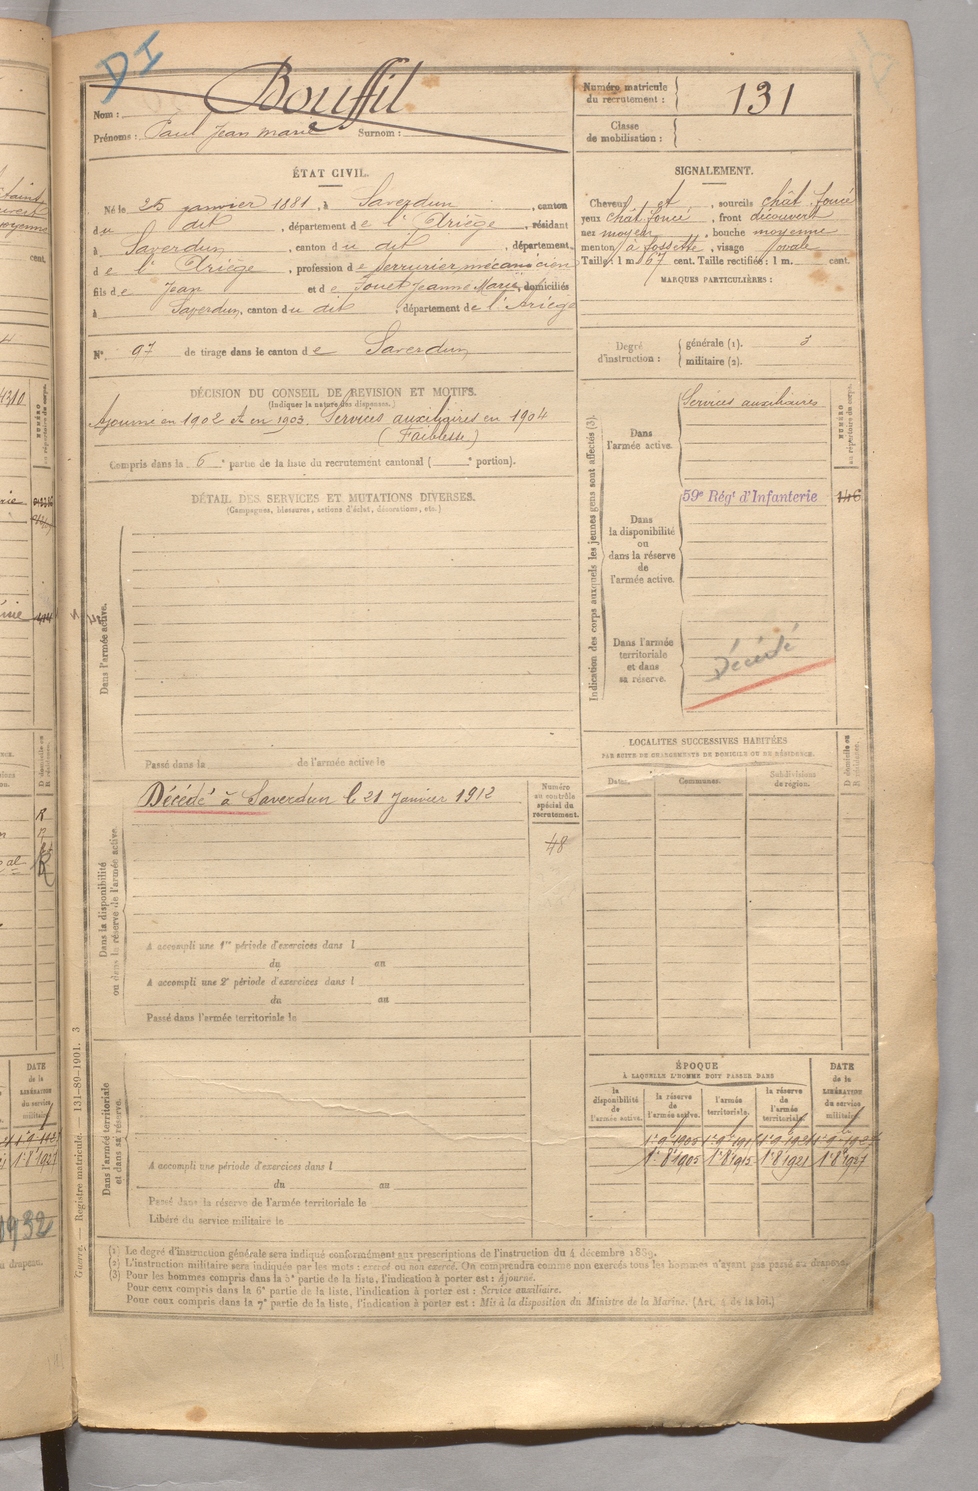 DI
Nom : Bouffil
Prénoms : Paul Jean Marie Surnom :
Numéro matricule
du recrutement : 131
Classe
de mobilisation :
ÉTAT CIVIL.
Né le 25 janvier 1881, à Saverdun, canton
du dit, département de l'Ariège, résidant
à Saverdun, canton du dit, département
de l'Ariège, profession de serrurier mécanicien
fils de Jean et de Fouet Jeanne Marie, domiciliés
à Saverdun, canton du dit, département de l'Ariège
N° 97 de tirage dans le canton de Saverdun
SIGNALEMENT.
Cheveux et, sourcils chât. foncé
yeux chât. foncé, front découvert
nez moyen, bouche moyenne
menton à fossette, visage ovale
Taille : 1 m. 67 cent. Taille rectifiée : 1 m. cent.
MARQUES PARTICULIÈRES :
Degré
d'instruction :
générale (1). 3
militaire (2).
DÉCISION DU CONSEIL DE REVISION ET MOTIFS.
(Indiquer la nature des dispenses.)
Ajourné en 1902 et en 1903. Services auxiliaires en 1904
(Faiblesse)
Compris dans la 6e partie de la liste du recrutement cantonal ( e portion).
DÉTAIL DES SERVICES ET MUTATIONS DIVERSES.
(Campagnes, blessures, actions d'éclat, décorations, etc.)
Dans l'armée active.
Passé dans la de l'armée active le
Indication des corps auxquels les jeunes gens sont affectés (3).
NUMÉRO
au répertoire du corps.
Dans
l'armée active.
Services auxiliaires
59e Régt d'Infanterie 146
Dans
la disponibilité
ou
dans la réserve
de
l'armée active.
Dans l'armée
territoriale
et dans
sa réserve.
Décédé
Dans la disponibilité
ou dans la réserve de l'armée active.
Décédé à Saverdun le 21 Janvier 1912
Numéro
au contrôle
spécial du
recrutement.
48
A accompli une 1re période d'exercices dans l
du au
A accompli une 2e période d'exercices dans l
du au
Passé dans l'armée territoriale le
LOCALITÉS SUCCESSIVES HABITÉES
PAR SUITE DE CHANGEMENTS DE DOMICILE OU DE RÉSIDENCE.
Dates. Communes. Subdivisions
de région.
D domicile ou
R résidence.
Dans l'armée territoriale
et dans sa réserve.
A accompli une période d'exercices dans l
du au
Passé dans la réserve de l'armée territoriale le
Libéré du service militaire le
ÉPOQUE
À LAQUELLE L'HOMME DOIT PASSER DANS
la
disponibilité
de
l'armée active.
la réserve
de
l'armée active.
l'armée
territoriale.
la réserve
de
l'armée
territoriale.
DATE
de la
LIBÉRATION
du service
militaire.
1er 8 1905 1er 8 1915 1er 8 1921 1er 8 1927
(1) Le degré d'instruction générale sera indiqué conformément aux prescriptions de l'instruction du 4 décembre 1889.
(2) L'instruction militaire sera indiquée par les mots : exercé ou non exercé. On comprendra comme non exercés tous les hommes n'ayant pas passé au drapeau.
(3) Pour les hommes compris dans la 5e partie de la liste, l'indication à porter est : Ajourné.
Pour ceux compris dans la 6e partie de la liste, l'indication à porter est : Service auxiliaire.
Pour ceux compris dans la 7e partie de la liste, l'indication à porter est : Mis à la disposition du Ministre de la Marine. (Art. 4 de la loi.)
Guerre. — Registre matricule. — 131-89-1901. 3